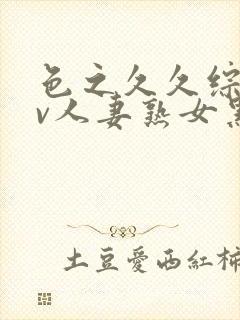 色之久久综
v人妻熟女
土豆愛西紅柿